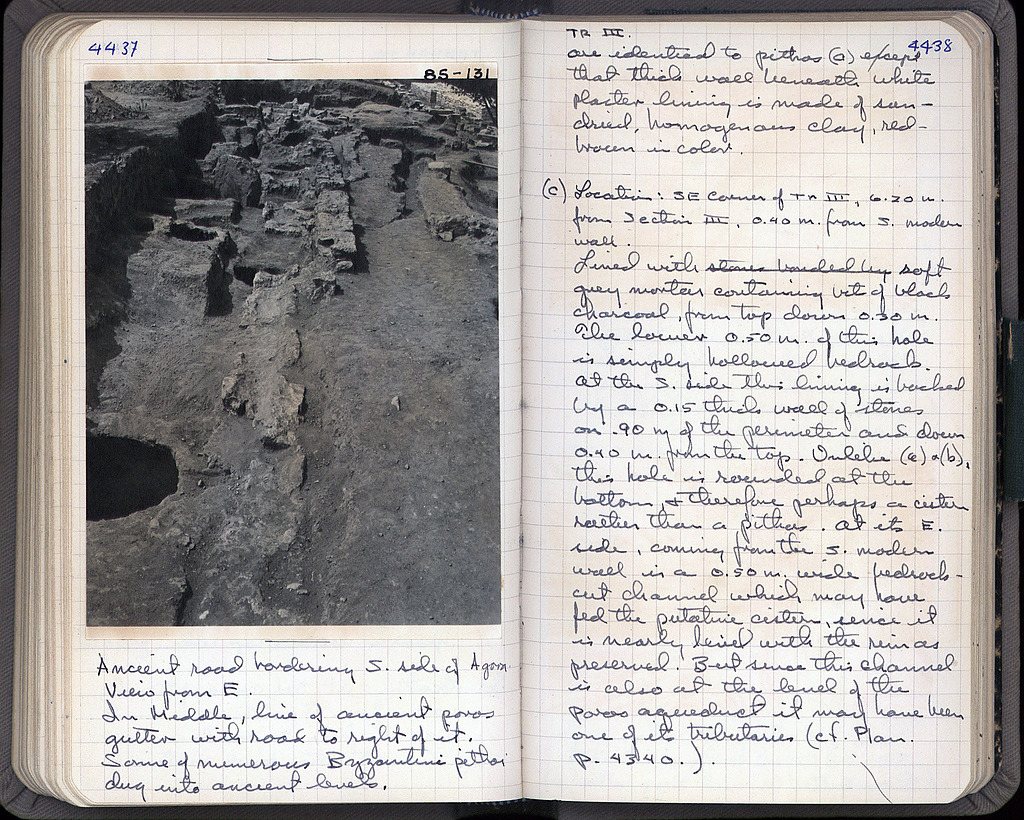 4437
85-131
Ancient road bordering S. side of Agora
View from E.
In Middle, line of ancient poros
gutter with road to right of it.
Some of numerous Byzantine pithoi
dug into ancient levels.
4438
TR III.
are identical to pithos (a) except
that thick wall beneath white
plaster lining is made of sun-
dried, homogenous clay, red-
brown in color.
(c) Location: SE corner of TR III, 6.20 m.
from Section III, 0.40 m. from S. modern
wall.
Lined with stones bonded by soft
grey mortar containing bits of black
charcoal, from top down 0.30 m.
The lower 0.50 m. of this hole
is simply hollowed bedrock.
At the S. side this lining is backed
by a 0.15 thick wall of stones
on .90 m of the perimeter and down
0.40 m. from the top. Unlike (a) & (b),
this hole is rounded at the
bottom, & therefore perhaps a cistern
rather than a pithos. At its E.
side, coming from the S. modern
wall is a 0.50 m. wide bedrock-
cut channel which may have
fed the putative cistern, since it
is nearly level with the rim as
preserved. But since this channel
is also at the level of the
poros aqueduct it may have been
one of its tributaries (cf. Plan.
p. 4340.).